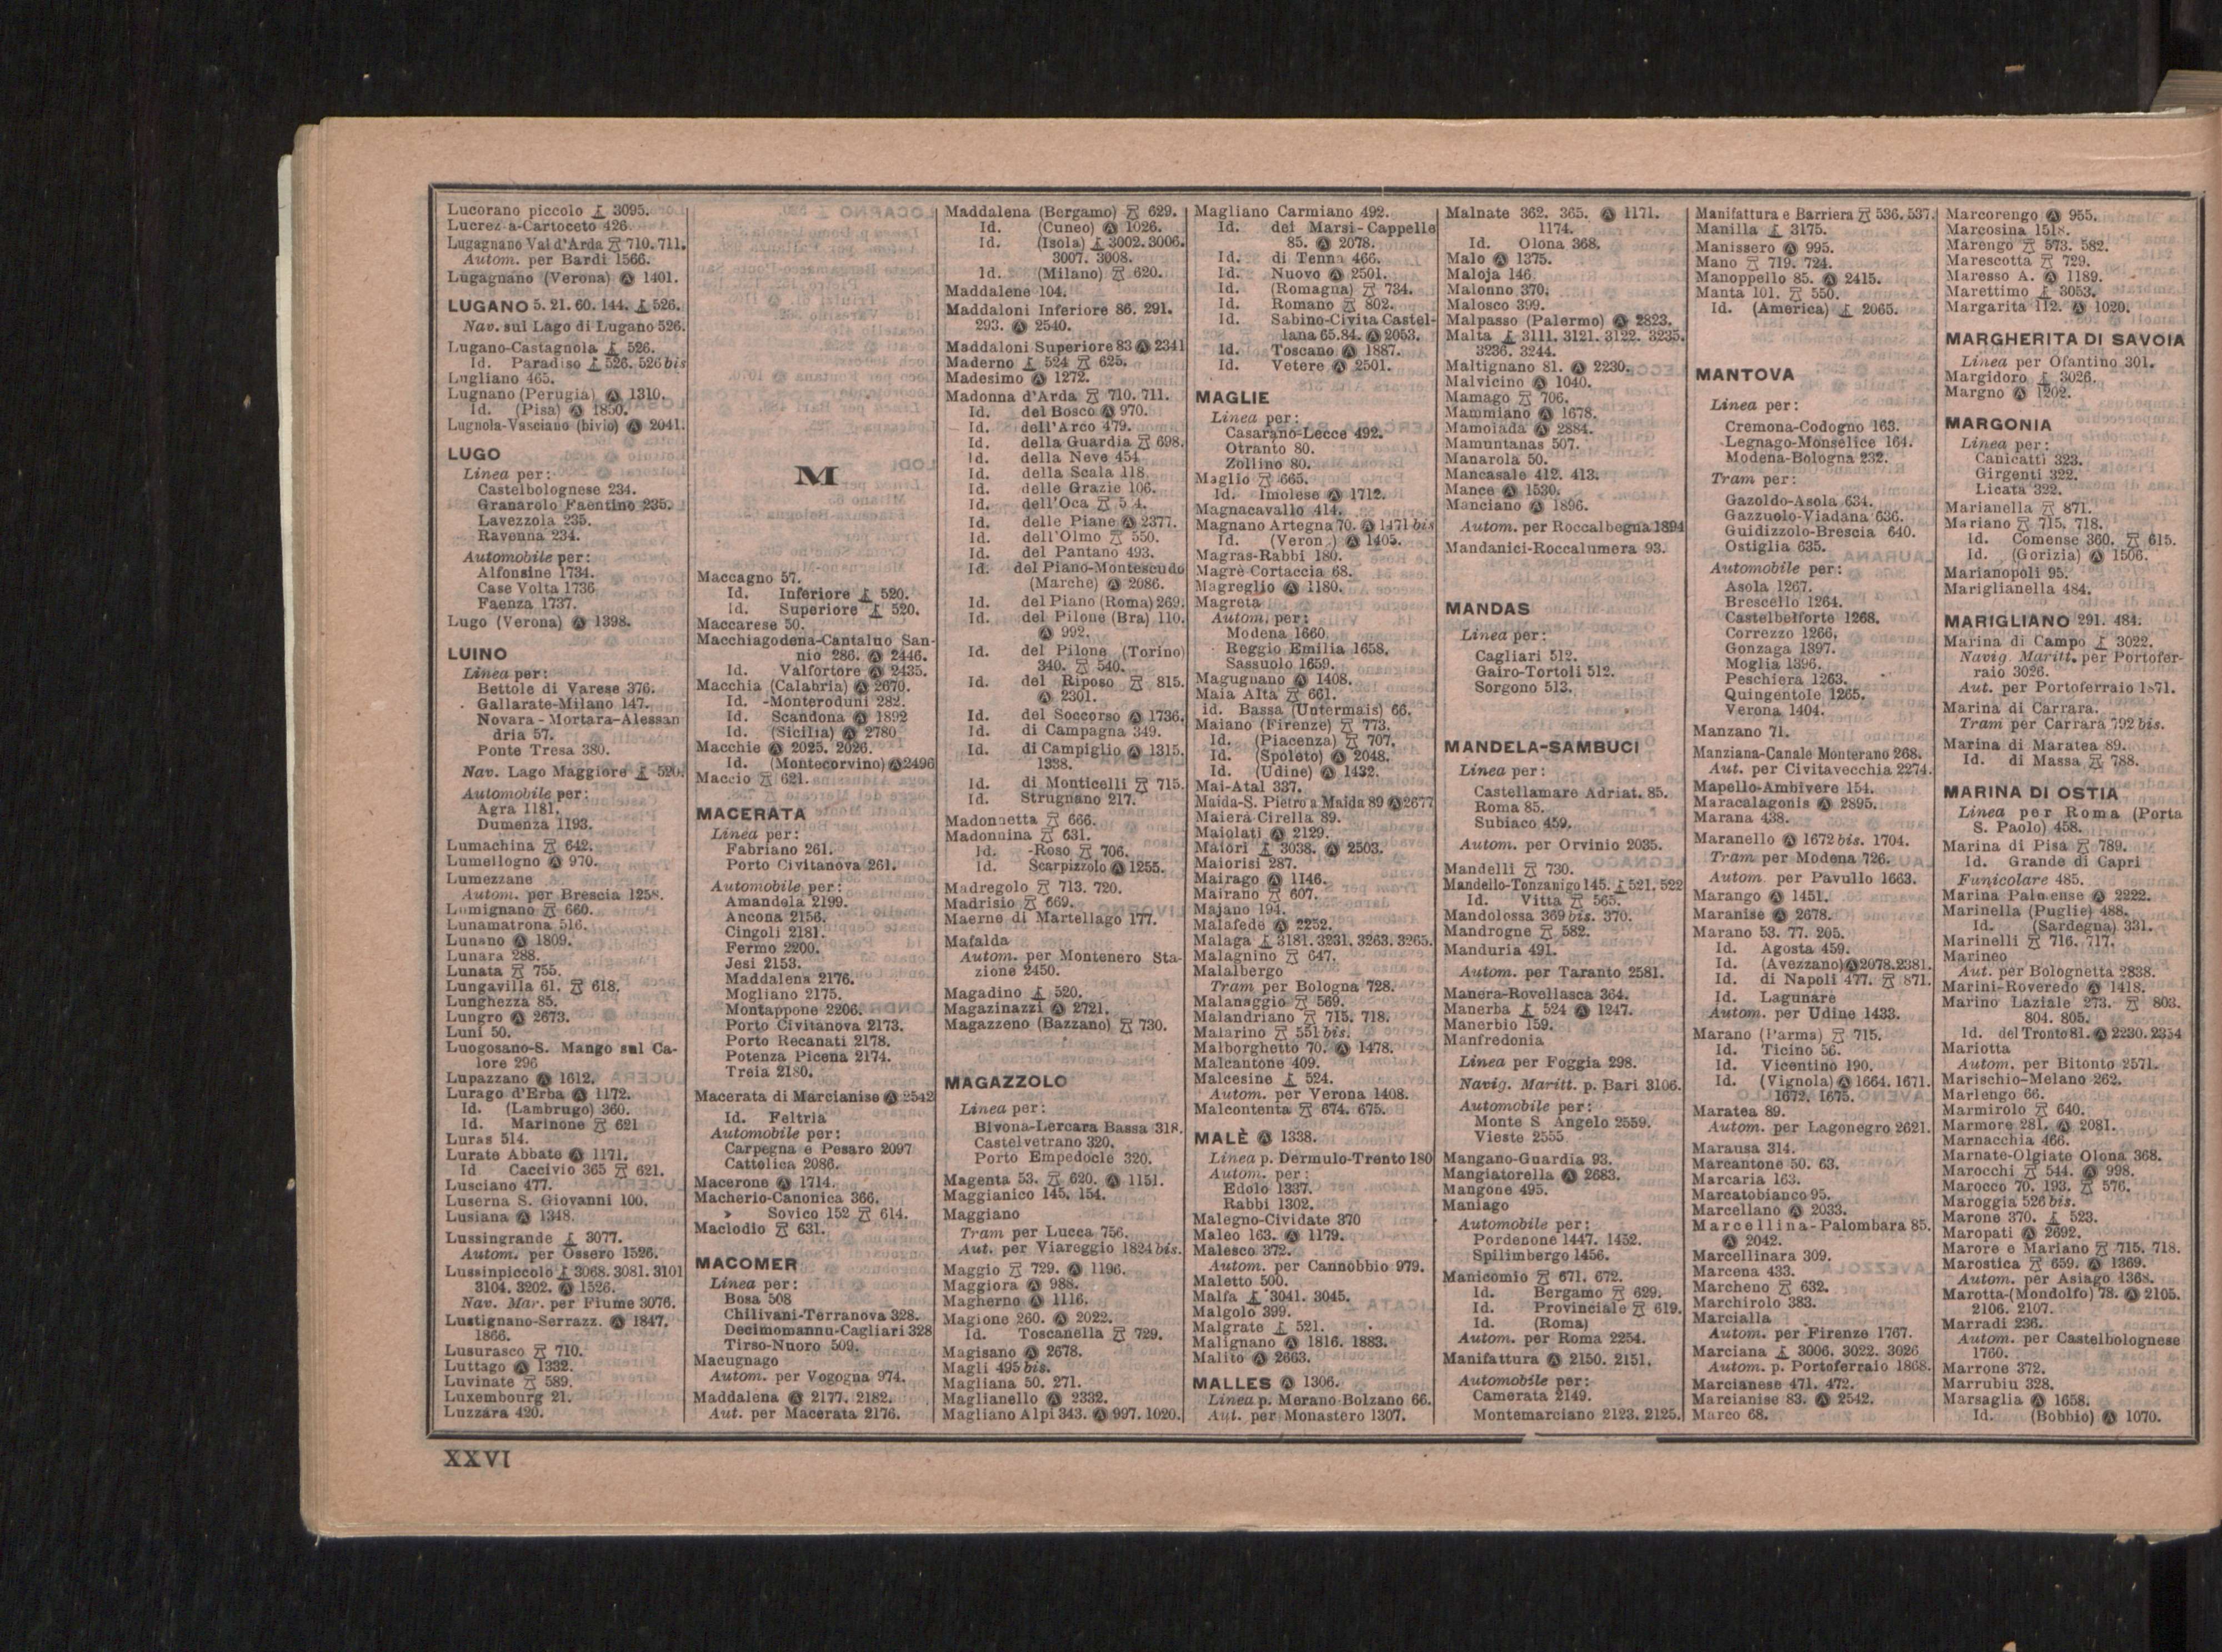 Lucorano piccolo 3095.
Lucrezia-Cartoceto 426
Lugagnano Val d'Arda 710. 711.
Autom. per Bardi 1566.
Lugagnano (Verona) Ⓐ 1401.
LUGANO 5. 21. 60. 144. 526.
Nav. sul Lago di Lugano 526.
Lugano-Castagnola 526.
Id. Paradiso 526. 526 bis
Lugliano 465.
Lugnano (Perugia) Ⓐ 1310.
Id. (Pisa) Ⓐ 1850.
Lugnola-Vasciano (bivio) Ⓐ 2041.
LUGO
Linea per:
Castelbolognese 234.
Granarolo Faentino 235.
Lavezzola 235.
Ravenna 234.
Automobile per:
Alfonsine 1734.
Case Volta 1736
Faenza 1737.
Lugo (Verona) Ⓐ 1398.
LUINO
Linea per:
Bettole di Varese 376.
Gallarate-Milano 147.
Novara-Mortara-Alessan
dria 57.
Ponte Tresa 380.
Nav. Lago Maggiore 520.
Automobile per:
Agra 1181.
Dumenza 1193.
Lumachina 642.
Lumellogno Ⓐ 970.
Lumezzane
Autom. per Brescia 1258.
Lumignano 660.
Lunamatrona 516.
Lunano Ⓐ 1809.
Lunara 288.
Lunata 755.
Lungavilla 61. 618.
Lunghezza 85.
Lungro Ⓐ 2673.
Luni 50.
Luogosano-S. Mango sul Ca-
lore 296
Lupazzano Ⓐ 1612.
Lurago d'Erba Ⓐ 1172.
Id. (Lambrugo) 360.
Id. Marinone 621
Luras 514.
Lurate Abbate Ⓐ 1171.
Id Caccivio 365 621.
Lusciano 477.
Luserna S. Giovanni 100.
Lusiana Ⓐ 1348.
Lussingrande 3077.
Autom. per Ossero 1526.
Lussinpiccolo 3068. 3081. 3101
3104. 3202. Ⓐ 1526.
Nav. Mar. per Fiume 3076.
Lustignano-Serrazz. Ⓐ 1847.
1866.
Lusurasco 710.
Luttago Ⓐ 1332.
Luvinate 589.
Luxembourg 21.
Luzzara 420.
M
Maccagno 57.
Id. Inferiore 520.
Id. Superiore 520.
Maccarese 50.
Macchiagodena-Cantaluo San-
nio 286. Ⓐ 2446.
Id. Valfortore Ⓐ 2435.
Macchia (Calabria) Ⓐ 2670.
Id. -Monteroduni 282.
Id. Scandona Ⓐ 1892
Id. (Sicilia) Ⓐ 2780
Macchie Ⓐ 2025. 2026.
Id. (Montecorvino) Ⓐ 2496
Maccio 621.
MACERATA
Linea per:
Fabriano 261.
Porto Civitanova 261.
Automobile per:
Amandola 2199.
Ancona 2156.
Cingoli 2181.
Fermo 2200.
Jesi 2153.
Maddalena 2176.
Mogliano 2175.
Montappone 2206.
Porto Civitanova 2173.
Porto Recanati 2178.
Potenza Picena 2174.
Treia 2180.
Macerata di Marcianise Ⓐ 2542
Id. Feltria
Automobile per:
Carpegna e Pesaro 2097
Cattolica 2086.
Macerone Ⓐ 1714.
Macherio-Canonica 366.
» Sovico 152 614.
Maclodio 631.
MACOMER
Linea per:
Bosa 508
Chilivani-Terranova 328.
Decimomannu-Cagliari 328
Tirso-Nuoro 509.
Macugnago
Autom. per Vogogna 974.
Maddalena Ⓐ 2177. 2182.
Aut. per Macerata 2176.
Maddalena (Bergamo) 629.
Id. (Cuneo) Ⓐ 1026.
Id. (Isola) 3002. 3006.
3007. 3008.
Id. (Milano) 620.
Maddalene 104.
Maddaloni Inferiore 86. 291.
293. Ⓐ 2540.
Maddaloni Superiore 83 Ⓐ 2341
Maderno 524 625.
Madesimo Ⓐ 1272.
Madonna d'Arda 710. 711.
Id. del Bosco Ⓐ 970.
Id. dell'Arco 479.
Id. della Guardia 698.
Id. della Neve 454
Id. della Scala 118
Id. delle Grazie 106.
Id. dell'Oca
Id. delle Piane Ⓐ 2377.
Id. dell'Olmo 550.
Id. del Pantano 493.
Id. del Piano-Montescudo
(Marche) Ⓐ 2086.
Id. del Piano (Roma) 269.
Id. del Pilone (Bra) 110.
Ⓐ 992.
Id. del Pilone (Torino)
340. 540.
Id. del Riposo 815.
Ⓐ 2301.
Id. del Soccorso Ⓐ 1736.
Id. di Campagna 349.
Id. di Campiglio Ⓐ 1315.
1338.
Id. di Monticelli 715.
Id. Strugnano 217.
Madonnetta 666.
Madonnina 631.
Id. -Roso 706.
Id. Scarpizzolo Ⓐ 1255.
Madregolo 713. 720.
Madrisio 669.
Maerne di Martellago 177.
Mafalda
Autom. per Montenero Sta-
zione 2450.
Magadino 520.
Magazinazzi Ⓐ 2721.
Magazzeno (Bazzano) 730.
MAGAZZOLO
Linea per:
Bivona-Lercara Bassa 318.
Castelvetrano 320.
Porto Empedocle 320.
Magenta 53. 620. Ⓐ 1151.
Maggianico 145. 154.
Maggiano
Tram per Lucca 756.
Aut. per Viareggio 1824 bis.
Maggio 729. Ⓐ 1196.
Maggiora Ⓐ 988.
Magherno Ⓐ 1116.
Magione 260. Ⓐ 2022.
Id. Toscanella 729.
Magisano Ⓐ 2678.
Magli 495 bis.
Magliana 50. 271.
Maglianello Ⓐ 2332.
Magliano Alpi 343. Ⓐ 997. 1020.
Magliano Carmiano 492.
Id. dei Marsi-Cappelle
85. Ⓐ 2078.
Id. di Tenna 466.
Id. Nuovo Ⓐ 2501.
Id. (Romagna) 734.
Id. Romano 802.
Id. Sabino-Civita Castel-
lana 65. 84. Ⓐ 2053.
Id. Toscano Ⓐ 1887.
Id. Vetere Ⓐ 2501.
MAGLIE
Linea per:
Casarano-Lecce 492.
Otranto 80.
Zollino 80.
Maglio 665.
Id. Imolese Ⓐ 1712.
Magnacavallo 414.
Magnano Artegna 70. Ⓐ 1471 bis
Id. (Veron.) Ⓐ 1405.
Magras-Rabbi 180.
Magrè Cortaccia 68.
Magreglio Ⓐ 1180.
Magreta
Autom. per:
Modena 1660.
Reggio Emilia 1658.
Sassuolo 1659.
Magugnano Ⓐ 1408.
Maia Alta 661.
id. Bassa (Untermais) 66.
Maiano (Firenze) 773.
Id. (Piacenza) 707.
Id. (Spoleto) Ⓐ 2048.
Id. (Udine) Ⓐ 1432.
Mai-Atal 337.
Maida-S. Pietro a Maida 89 Ⓐ 2677
Maierà Cirella 89.
Maiolati Ⓐ 2129.
Maiori 3038. Ⓐ 2503.
Maiorisi 287.
Mairago Ⓐ 1146.
Mairano 607.
Majano 194.
Malafede Ⓐ 2252.
Malaga 3181. 3231. 3263. 3265.
Malagnino 647.
Malalbergo
Tram per Bologna 728.
Malanaggio 569.
Malandriano 715. 718.
Malarino 551 bis.
Malborghetto 70. Ⓐ 1478.
Malcantone 409.
Malcesine 524.
Autom. per Verona 1408.
Malcontenta 674. 675.
MALÈ Ⓐ 1338.
Linea p. Dermulo-Trento 180
Autom. per:
Edolo 1337.
Rabbi 1302.
Malegno-Cividate 370
Maleo 163. Ⓐ 1179.
Malesco 372.
Autom. per Cannobbio 979.
Maletto 500.
Malfa 3041. 3045.
Malgolo 399.
Malgrate 521.
Malignano Ⓐ 1816. 1883.
Malito Ⓐ 2663.
MALLES Ⓐ 1306.
Linea p. Merano Bolzano 66.
Aut. per Monastero 1307.
Malnate 362. 365. Ⓐ 1171.
1174.
Id. Olona 368.
Malo Ⓐ 1375.
Maloja 146.
Malonno 370.
Malosco 399.
Malpasso (Palermo) Ⓐ 2823.
Malta 3111. 3121. 3122. 3235.
3236. 3244.
Maltignano 81. Ⓐ 2230.
Malvicino Ⓐ 1040.
Mamago 706.
Mammiano Ⓐ 1678.
Mamoiada Ⓐ 2884.
Mamuntanas 507.
Manarola 50.
Mancasale 412. 413.
Mance Ⓐ 1530.
Manciano Ⓐ 1896.
Autom. per Roccalbegna 1894
Mandanici-Roccalumera 93.
MANDAS
Linea per:
Cagliari 512.
Gairo-Tortoli 512.
Sorgono 513.
MANDELA-SAMBUCI
Linea per:
Castellamare Adriat. 85.
Roma 85.
Subiaco 459.
Autom. per Orvinio 2035.
Mandelli 730.
Mandello-Tonzanigo 145. 521. 522
Id. Vitta 565.
Mandolossa 369 bis. 370.
Mandrogne 582.
Manduria 491.
Autom. per Taranto 2581.
Manera-Rovellasca 364.
Manerba 524 Ⓐ 1247.
Manerbio 159.
Manfredonia
Linea per Foggia 298.
Navig. Maritt. p. Bari 3106.
Automobile per:
Monte S Angelo 2559.
Vieste 2555
Mangano-Guardia 93.
Mangiatorella Ⓐ 2683.
Mangone 495.
Maniago
Automobile per:
Pordenone 1447. 1452.
Spilimbergo 1456.
Manicomio 671. 672.
Id. Bergamo 629.
Id. Provinciale 619.
Id. (Roma)
Autom. per Roma 2254.
Manifattura Ⓐ 2150. 2151.
Automobile per:
Camerata 2149.
Montemarciano 2123. 2125.
Manifattura e Barriera 536. 537.
Manilla 3175.
Manissero Ⓐ 995.
Mano 719. 724.
Manoppello 85. Ⓐ 2415.
Manta 101. 550.
Id. (America) 2065.
MANTOVA
Linea per:
Cremona-Codogno 163.
Legnago-Monselice 164.
Modena-Bologna 232.
Tram per:
Gazoldo-Asola 634.
Gazzuolo-Viadana 636.
Guidizzolo-Brescia 640.
Ostiglia 635.
Automobile per:
Asola 1267.
Brescello 1264.
Castelbelforte 1268.
Correzzo 1266.
Gonzaga 1897.
Moglia 1396.
Peschiera 1263.
Quingentole 1265.
Verona 1404.
Manzano 71.
Manziana-Canale Monterano 268.
Aut. per Civitavecchia 2274.
Mapello-Ambivere 154.
Maracalagonis Ⓐ 2895.
Marana 438.
Maranello Ⓐ 1672 bis. 1704.
Tram per Modena 726.
Autom. per Pavullo 1663.
Marango Ⓐ 1451.
Maranise Ⓐ 2678.
Marano 53. 77. 205.
Id. Agosta 459.
Id. (Avezzano) Ⓐ 2078. 2381.
Id. di Napoli 477. 871.
Id. Lagunare
Autom. per Udine 1433.
Marano (Parma) 715.
Id. Ticino 56.
Id. Vicentino 190.
Id. (Vignola) Ⓐ 1664. 1671.
1672. 1675.
Maratea 89.
Autom. per Lagonegro 2621.
Marausa 314.
Marcantone 50. 63.
Marcaria 163.
Marcatobianco 95.
Marcellano Ⓐ 2033.
Marcellina-Palombara 85.
Ⓐ 2042.
Marcellinara 309.
Marcena 433.
Marcheno 632.
Marchirolo 383.
Marcialla
Autom. per Firenze 1767.
Marciana 3006. 3022. 3026
Autom. p. Portoferraio 1868.
Marcianese 471. 472.
Marcianise 83. Ⓐ 2542.
Marco 68.
Marcorengo Ⓐ 955.
Marcosina 1518.
Marengo 573. 582.
Marescotta 729.
Maresso A. Ⓐ 1189.
Marettimo 3053.
Margarita 112. Ⓐ 1020.
MARGHERITA DI SAVOIA
Linea per Ofantino 301.
Margidoro 3026.
Margno Ⓐ 1202.
MARGONIA
Linea per:
Canicatti 323.
Girgenti 322.
Licata 322.
Marianella 871.
Mariano 715. 718.
Id. Comense 360. 615.
Id. (Gorizia) Ⓐ 1506.
Marianopoli 95.
Mariglianella 484.
MARIGLIANO 291. 484.
Marina di Campo 3022.
Navig. Maritt. per Portofer-
raio 3026.
Aut. per Portoferraio 1871.
Marina di Carrara.
Tram per Carrara 792 bis.
Marina di Maratea 89.
Id. di Massa 788.
MARINA DI OSTIA
Linea per Roma (Porta
S. Paolo) 458.
Marina di Pisa 789.
Id. Grande di Capri
Funicolare 485.
Marina Palmense Ⓐ 2222.
Marinella (Puglie) 488.
Id. (Sardegna) 331.
Marinelli 716. 717.
Marineo
Aut. per Bolognetta 2838.
Marini-Roveredo Ⓐ 1418.
Marino Laziale 273. 803.
804. 805.
Id. del Tronto 81. Ⓐ 2230. 2354
Mariotta
Autom. per Bitonto 2571.
Marischio-Melano 262.
Marlengo 66.
Marmirolo 640.
Marmore 281. Ⓐ 2081.
Marnacchia 466.
Marnate-Olgiate Olona 368.
Marocchi 544. Ⓐ 998.
Marocco 70. 193. 576.
Maroggia 526 bis.
Marone 370. 523.
Maropati Ⓐ 2692.
Marore e Mariano 715. 718.
Marostica 659. Ⓐ 1369.
Autom. per Asiago 1368.
Marotta-(Mondolfo) 78. Ⓐ 2105.
2106. 2107.
Marradi 236.
Autom. per Castelbolognese
1760.
Marrone 372.
Marrubiu 328.
Marsaglia Ⓐ 1658.
Id. (Bobbio) Ⓐ 1070.
XXVI